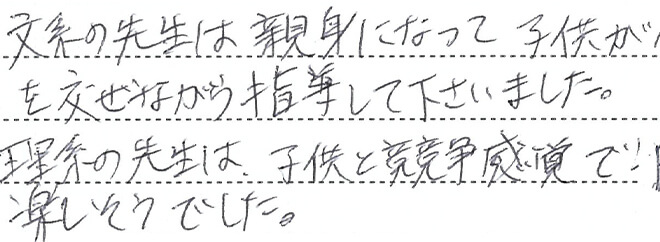 文系の先生は親身になって子供が
を交ぜながら指導して下さいました。
理系の先生は、子供と競争感覚で
楽しそうでした。